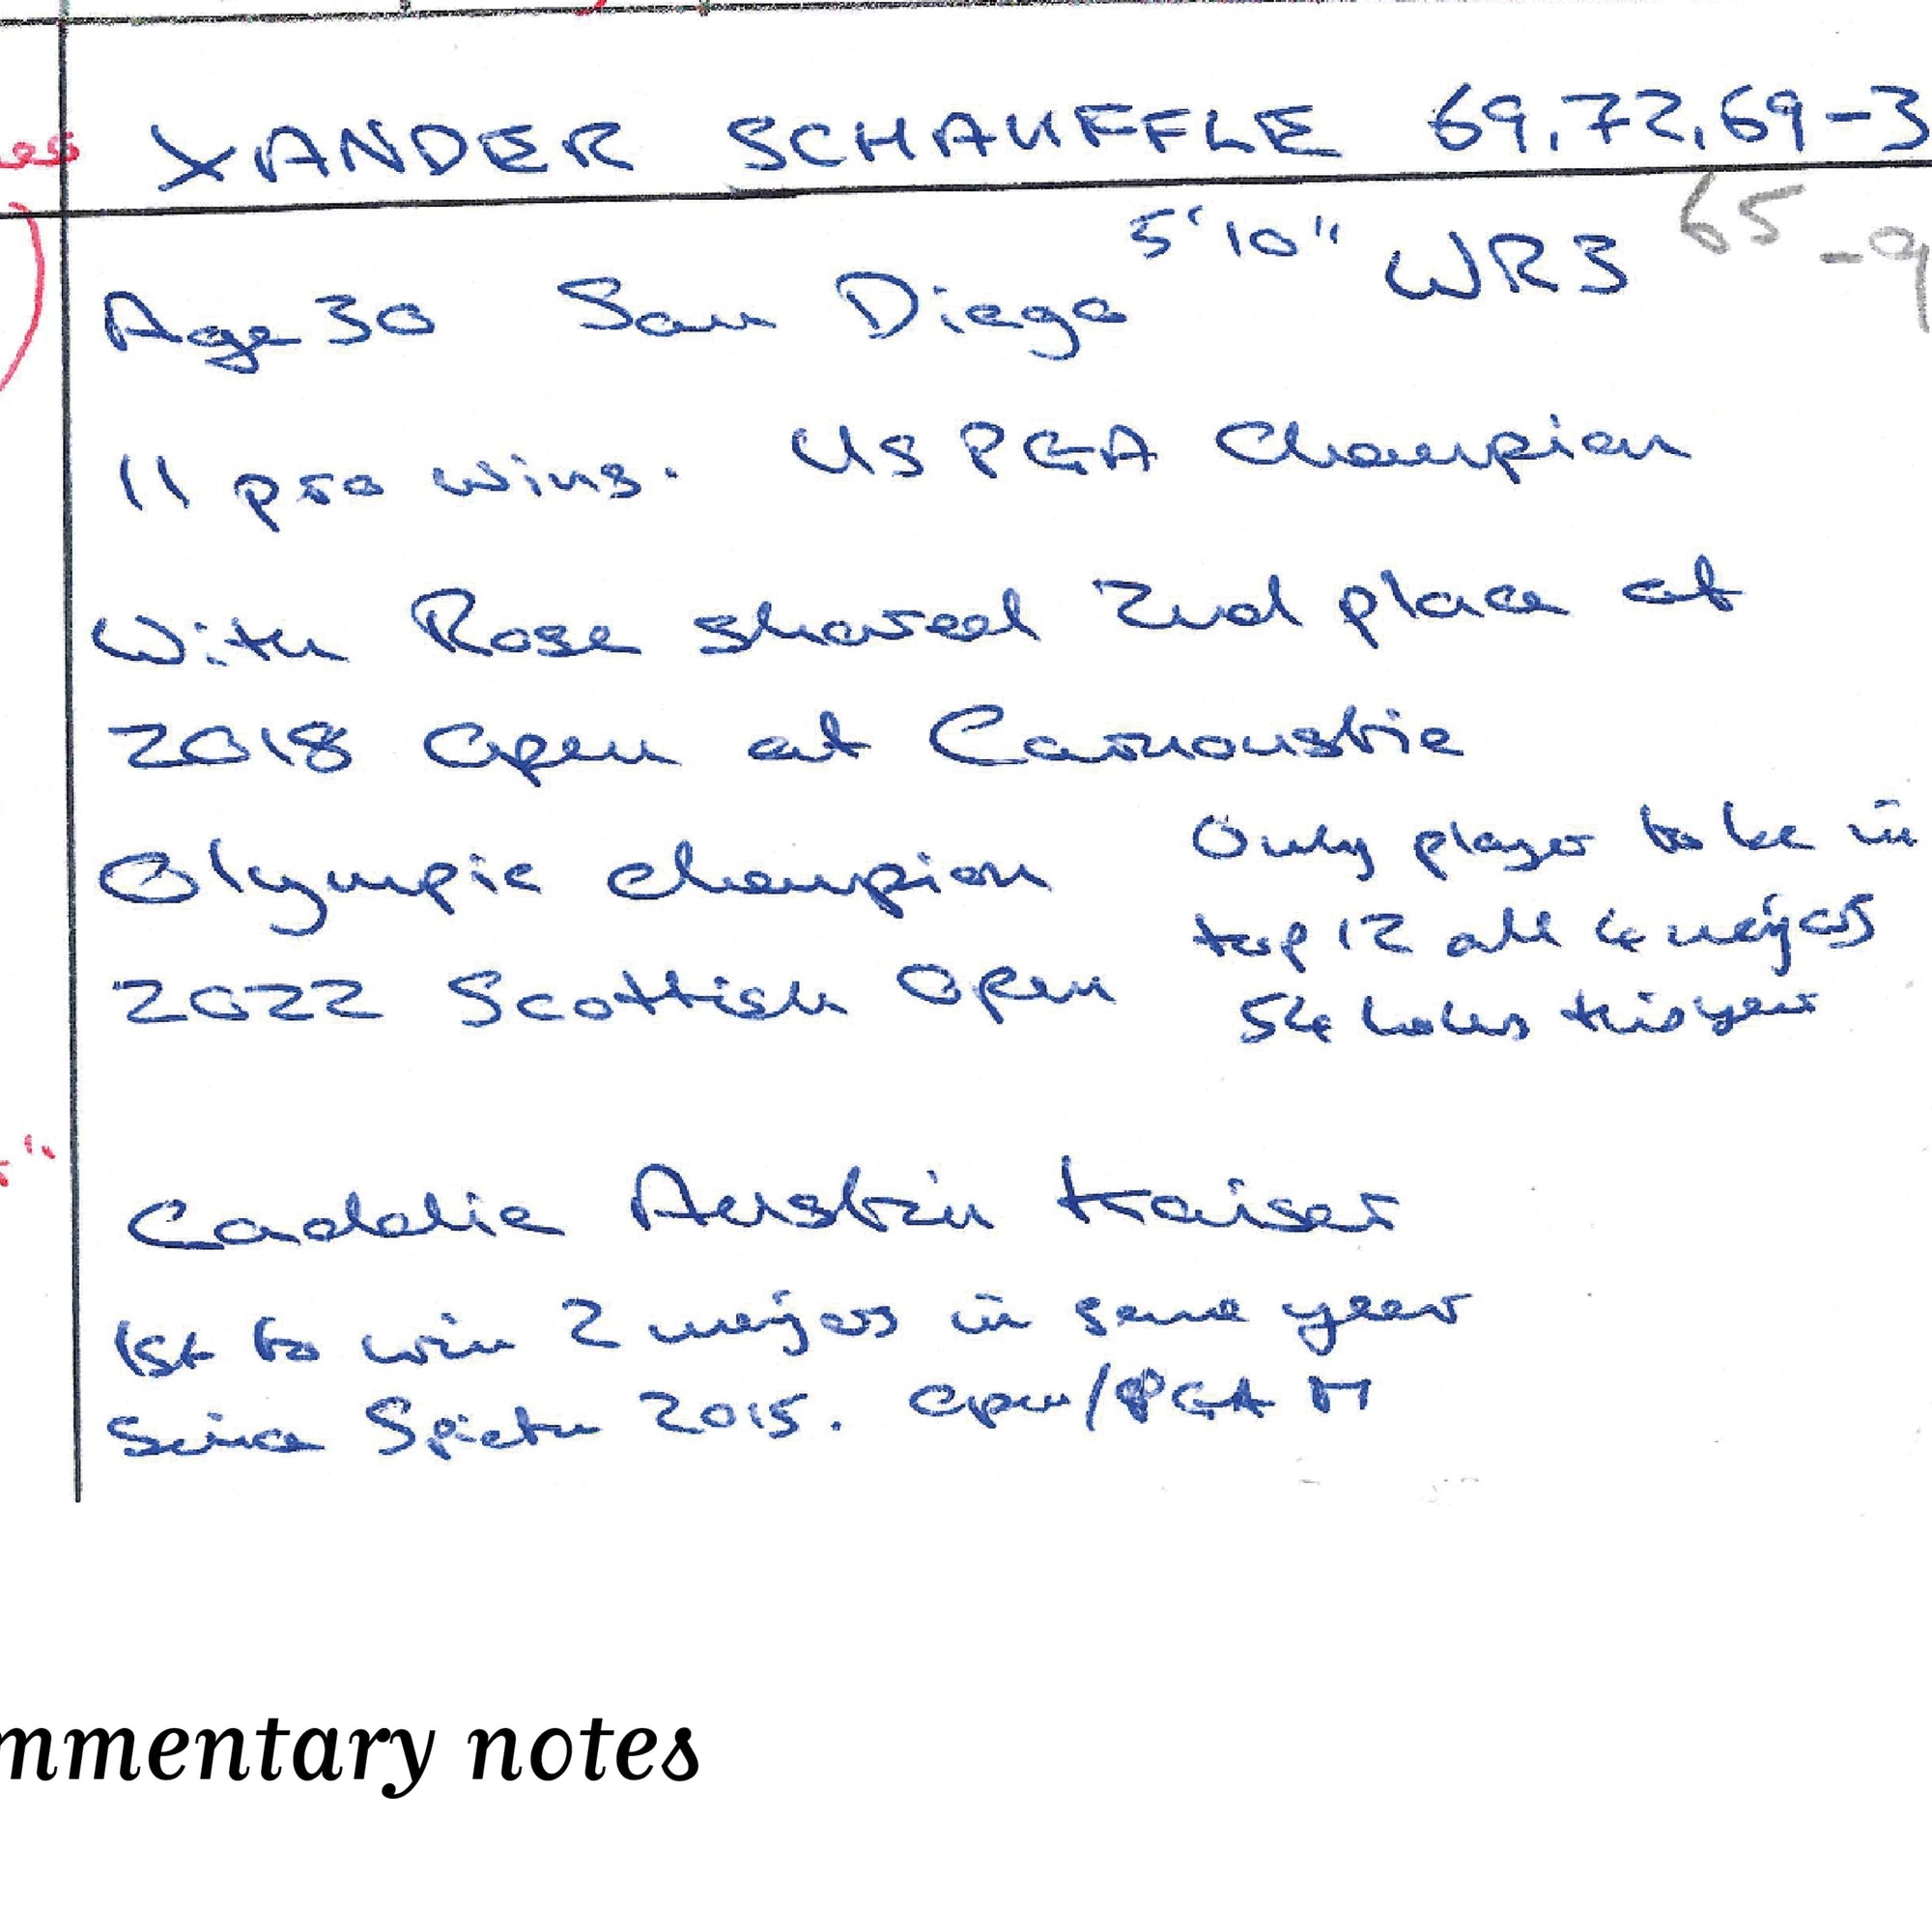 es
XANDER SCHAUFFLE 69,72,69-3
65-9
5'10" WR3
Age 30 San Diego
11 pro wins. US PGA Champion
With Rose shared 2nd place at
2018 Open at Carnoustie
Olympic champion
2022 Scottish Open
Only player to be in
top 12 all 4 majors
54 holes this year
Caddie Austin Kaiser
1st to win 2 majors in same year
Since Spieth 2015. Open/PGA M
mmentary notes